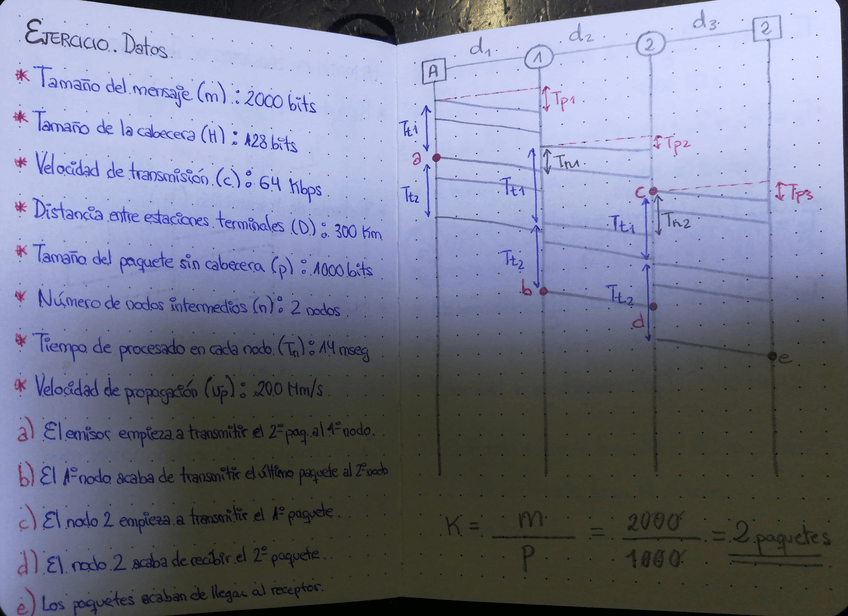 EJERCICIO. Datos
* Tamaño del mensaje (m) : 2000 bits
* Tamaño de la cabecera (H) : 128 bits
* Velocidad de transmisión (c) : 64 Kbps
* Distancia entre estaciones terminales (D) : 300 Km
* Tamaño del paquete sin cabecera (p) : 1000 bits
* Número de nodos intermedios (n) : 2 nodos
* Tiempo de procesado en cada nodo (Tn) : 14 mseg
* Velocidad de propagación (Vp) : 200 Mm/s
a) El emisor empieza a transmitir el 2º paq. al 1º nodo.
b) El 1º nodo acaba de transmitir el último paquete al 2º nodo
c) El nodo 2 empieza a transmitir el 1º paquete.
d) El nodo 2 acaba de recibir el 2º paquete.
e) Los paquetes acaban de llegar al receptor.
A d1 1 d2 2 d3 2
Tp1
Tt1
Tp2
a
Tn1
Tt2
Tt1
c
Tp3
Tt1
Tn2
Tt2
b
Tt2
d
e
K = m / p = 2000 / 1000 = 2 paquetes